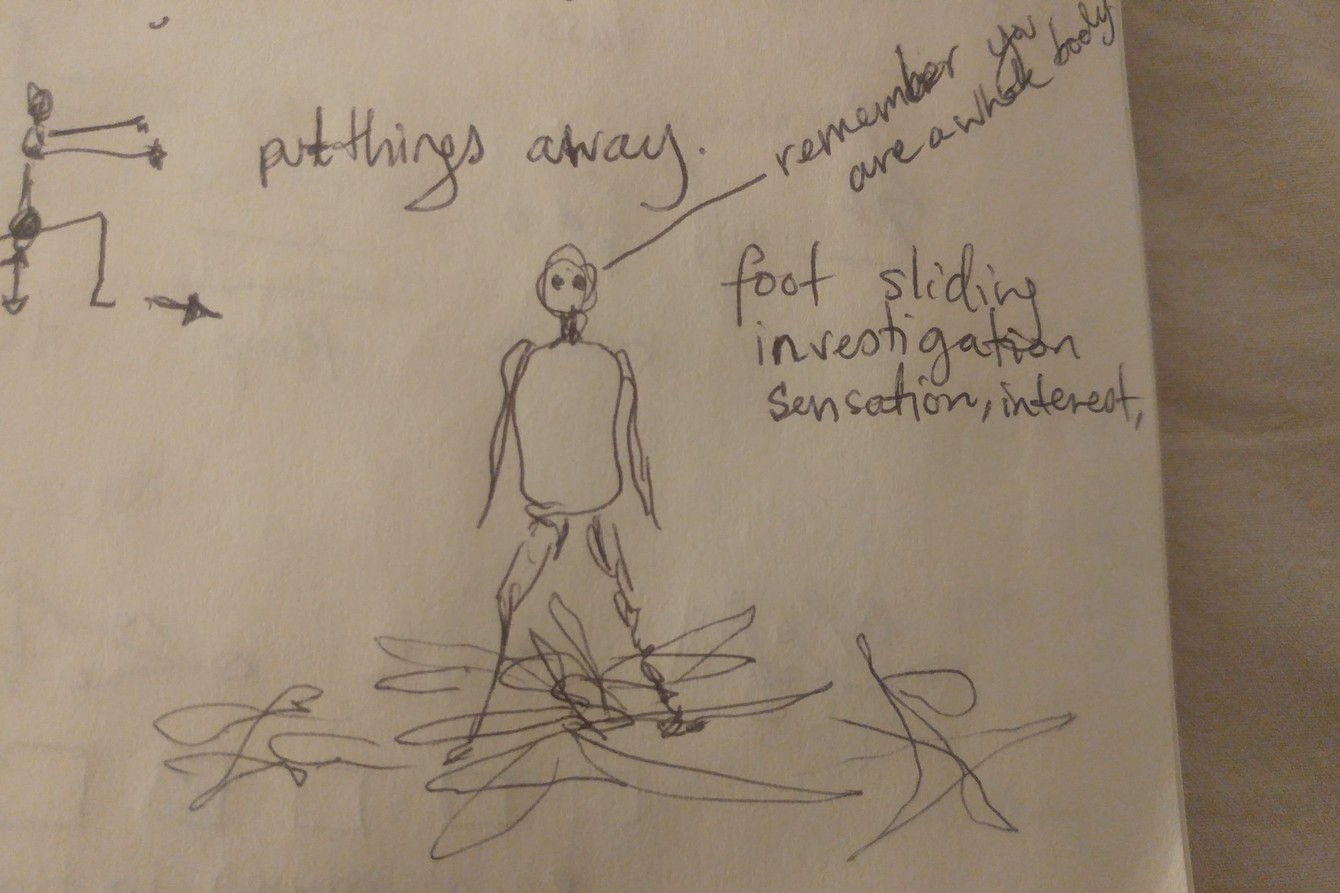 put things away.
remember you
are a whole body
foot sliding
investigation
sensation, interest,